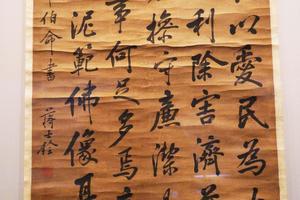 以愛民為
利除害濟
操守廉潔
事何足多焉
泥範佛像耳
伯命書
蔣士銓